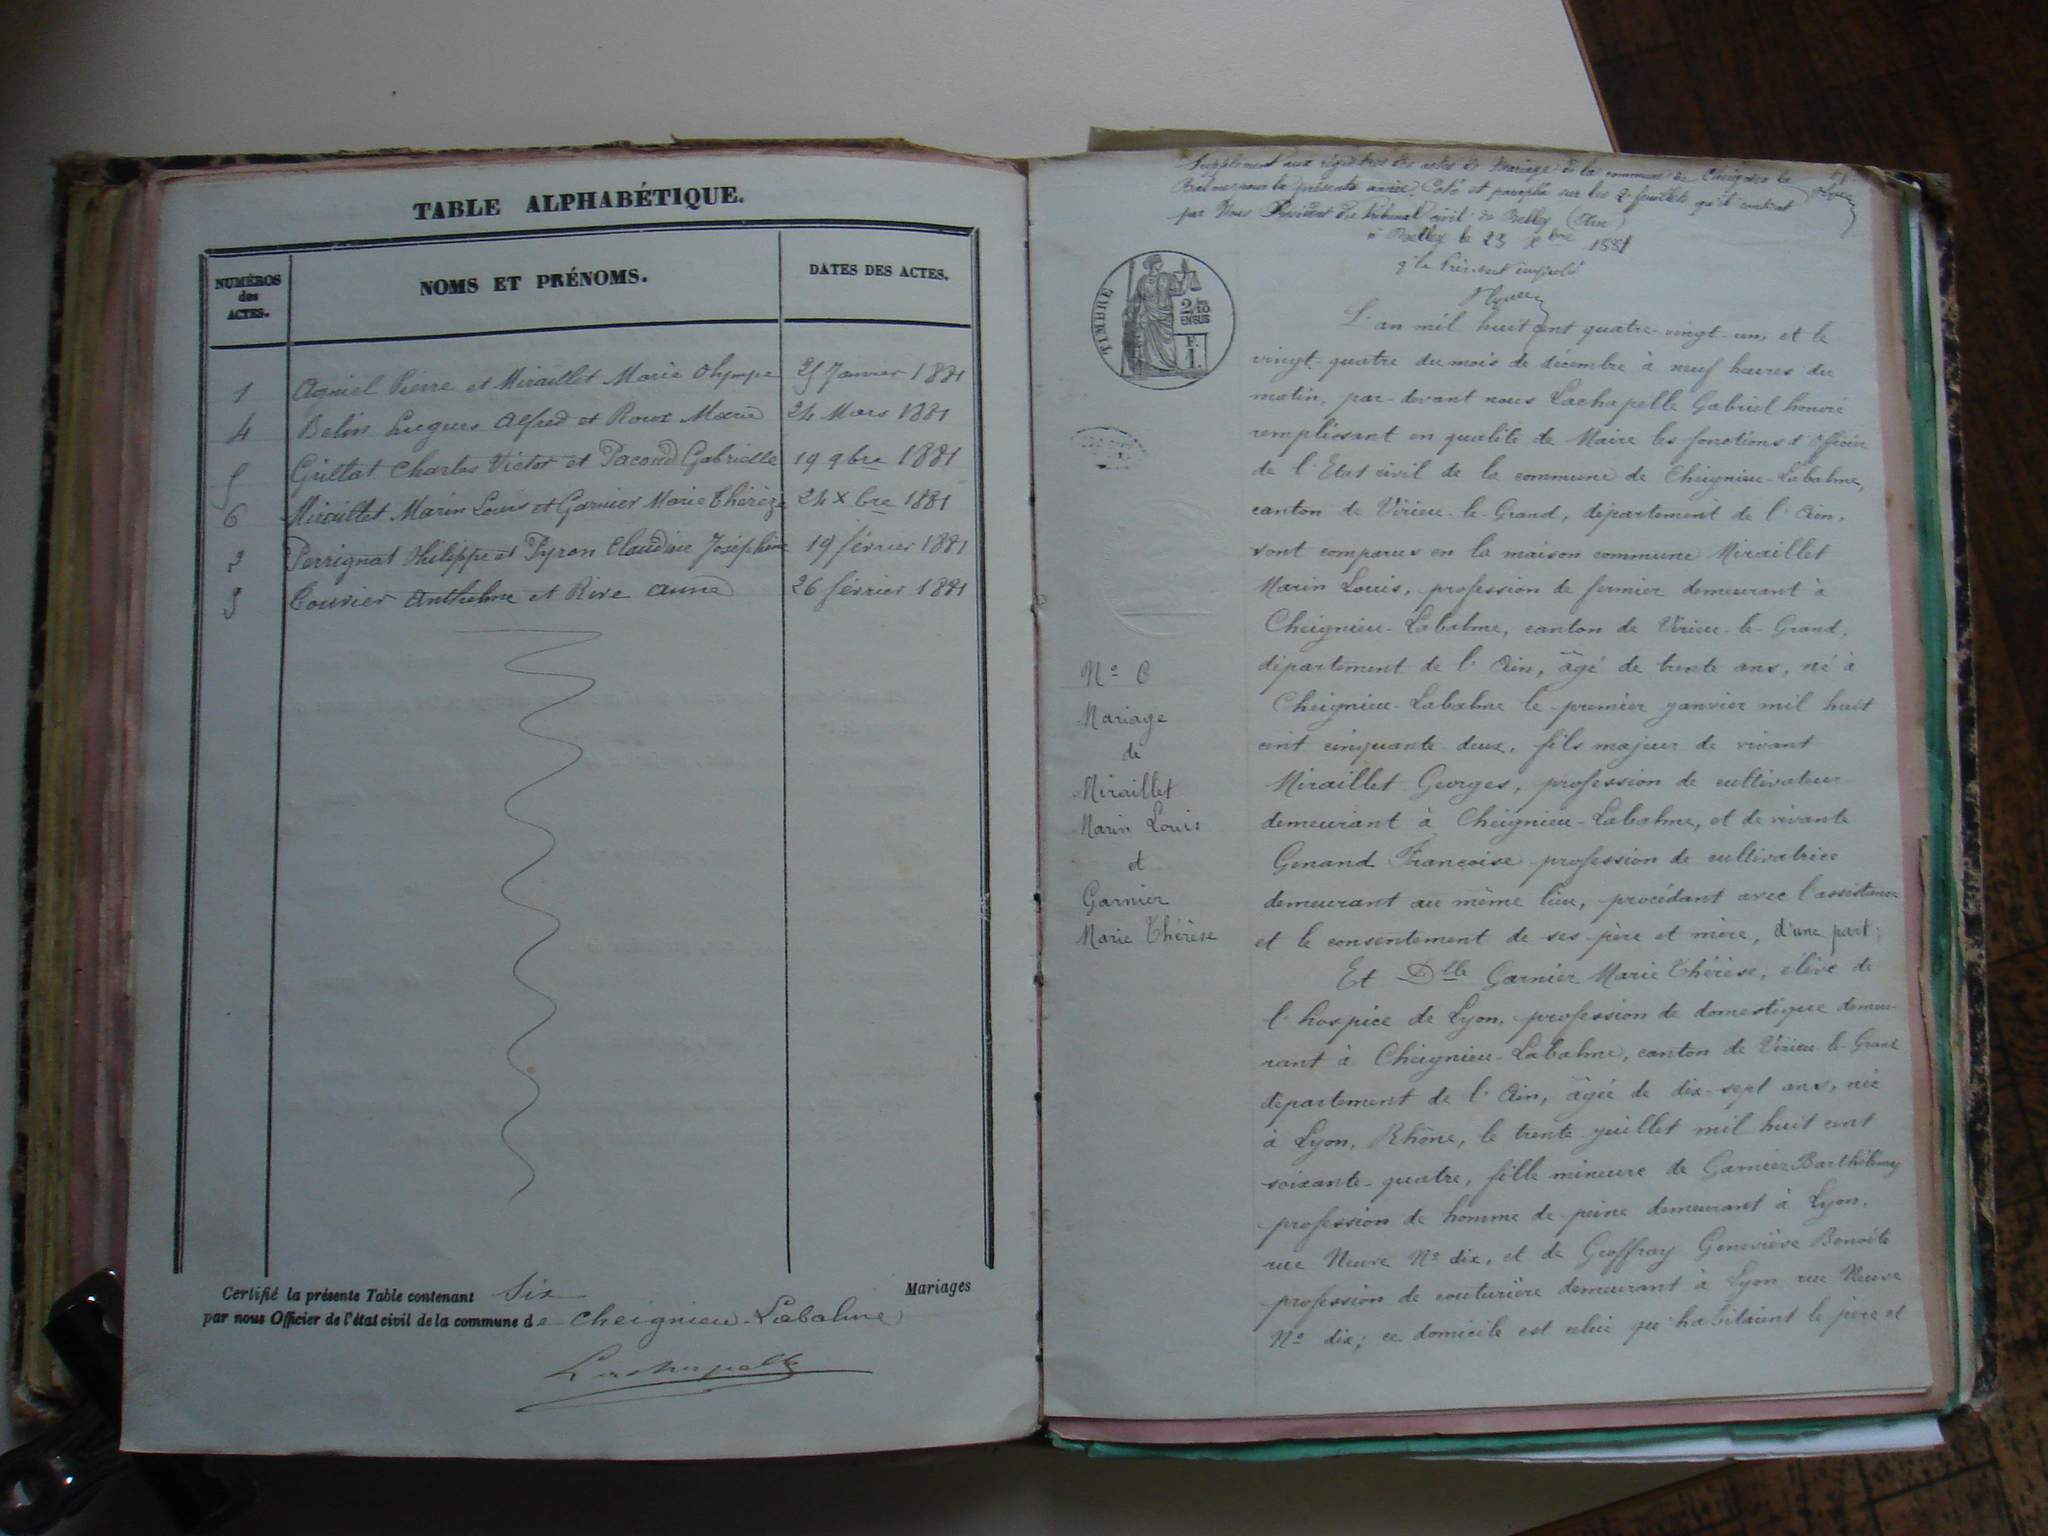 TABLE ALPHABÉTIQUE.
NUMÉROS
des
ACTES.
NOMS ET PRÉNOMS.
DATES DES ACTES.
1 Agniel Pierre et Miraillet Marie Olympe 25 Janvier 1881
4 Belin Hugues Alfred et Roux Marie 24 Mars 1881
5 Grillat Charles Victor et Pacoud Gabrielle 19 9bre 1881
6 Miraillet Marin Louis et Garnier Marie Thérèze 24 xbre 1881
2 Perrignat Philippe et Pyron Claudine Joséphine 19 février 1881
3 Couvier Anthelme et Rive Anna 26 février 1881
Certifié la présente Table contenant Six Mariages
par nous Officier de l'état civil de la commune de Cheignieu-Labalme
Lachapelle
Supplément aux régistres des actes de Mariage de la commune de Cheignieu la
Balme pour la présente année. Coté et paraphé sur les 2 feuillets qu'il contient
par Nous Président du tribunal civil de Belley (Ain)
à Belley le 23 xbre 1881
TIMBRE
2/10
EN SUS
F.
1.
L'an mil huit cent quatre-vingt-un, et le
vingt-quatre du mois de décembre à neuf heures du
matin, par-devant nous Lachapelle Gabriel honoré
remplissant en qualité de Maire les fonctions d'officier
de l'Etat civil de la commune de Cheignieu-Labalme,
canton de Virieu-le-Grand, département de l'Ain,
sont comparus en la maison commune Miraillet
Marin Louis, profession de fermier demeurant à
Cheignieu-Labalme, canton de Virieu-le-Grand,
département de l'Ain, âgé de trente ans, né à
Cheignieu-Labalme le premier janvier mil huit
cent cinquante-deux, fils majeur de vivant
Miraillet Georges, profession de cultivateur
demeurant à Cheignieu-Labalme, et de vivante
Genand Françoise profession de cultivatrice
demeurant au même lieu, procédant avec l'assistance
et le consentement de ses père et mère, d'une part;
Et Dlle Garnier Marie Thérèse, élève de
l'hospice de Lyon, profession de domestique demeu-
rant à Cheignieu-Labalme, canton de Virieu-le-Grand
département de l'Ain, âgée de dix-sept ans, née
à Lyon, Rhône, le trente juillet mil huit cent
soixante-quatre, fille mineure de Garnier Barthélemy
profession de homme de peine demeurant à Lyon,
rue Neuve No dix, et de Geoffray Geneviève Benoîte
profession de couturière demeurant à Lyon rue Neuve
No dix; ce domicile est celui qu'habitaient le père et
No 6
Mariage
de
Miraillet
Marin Louis
et
Garnier
Marie Thérèse